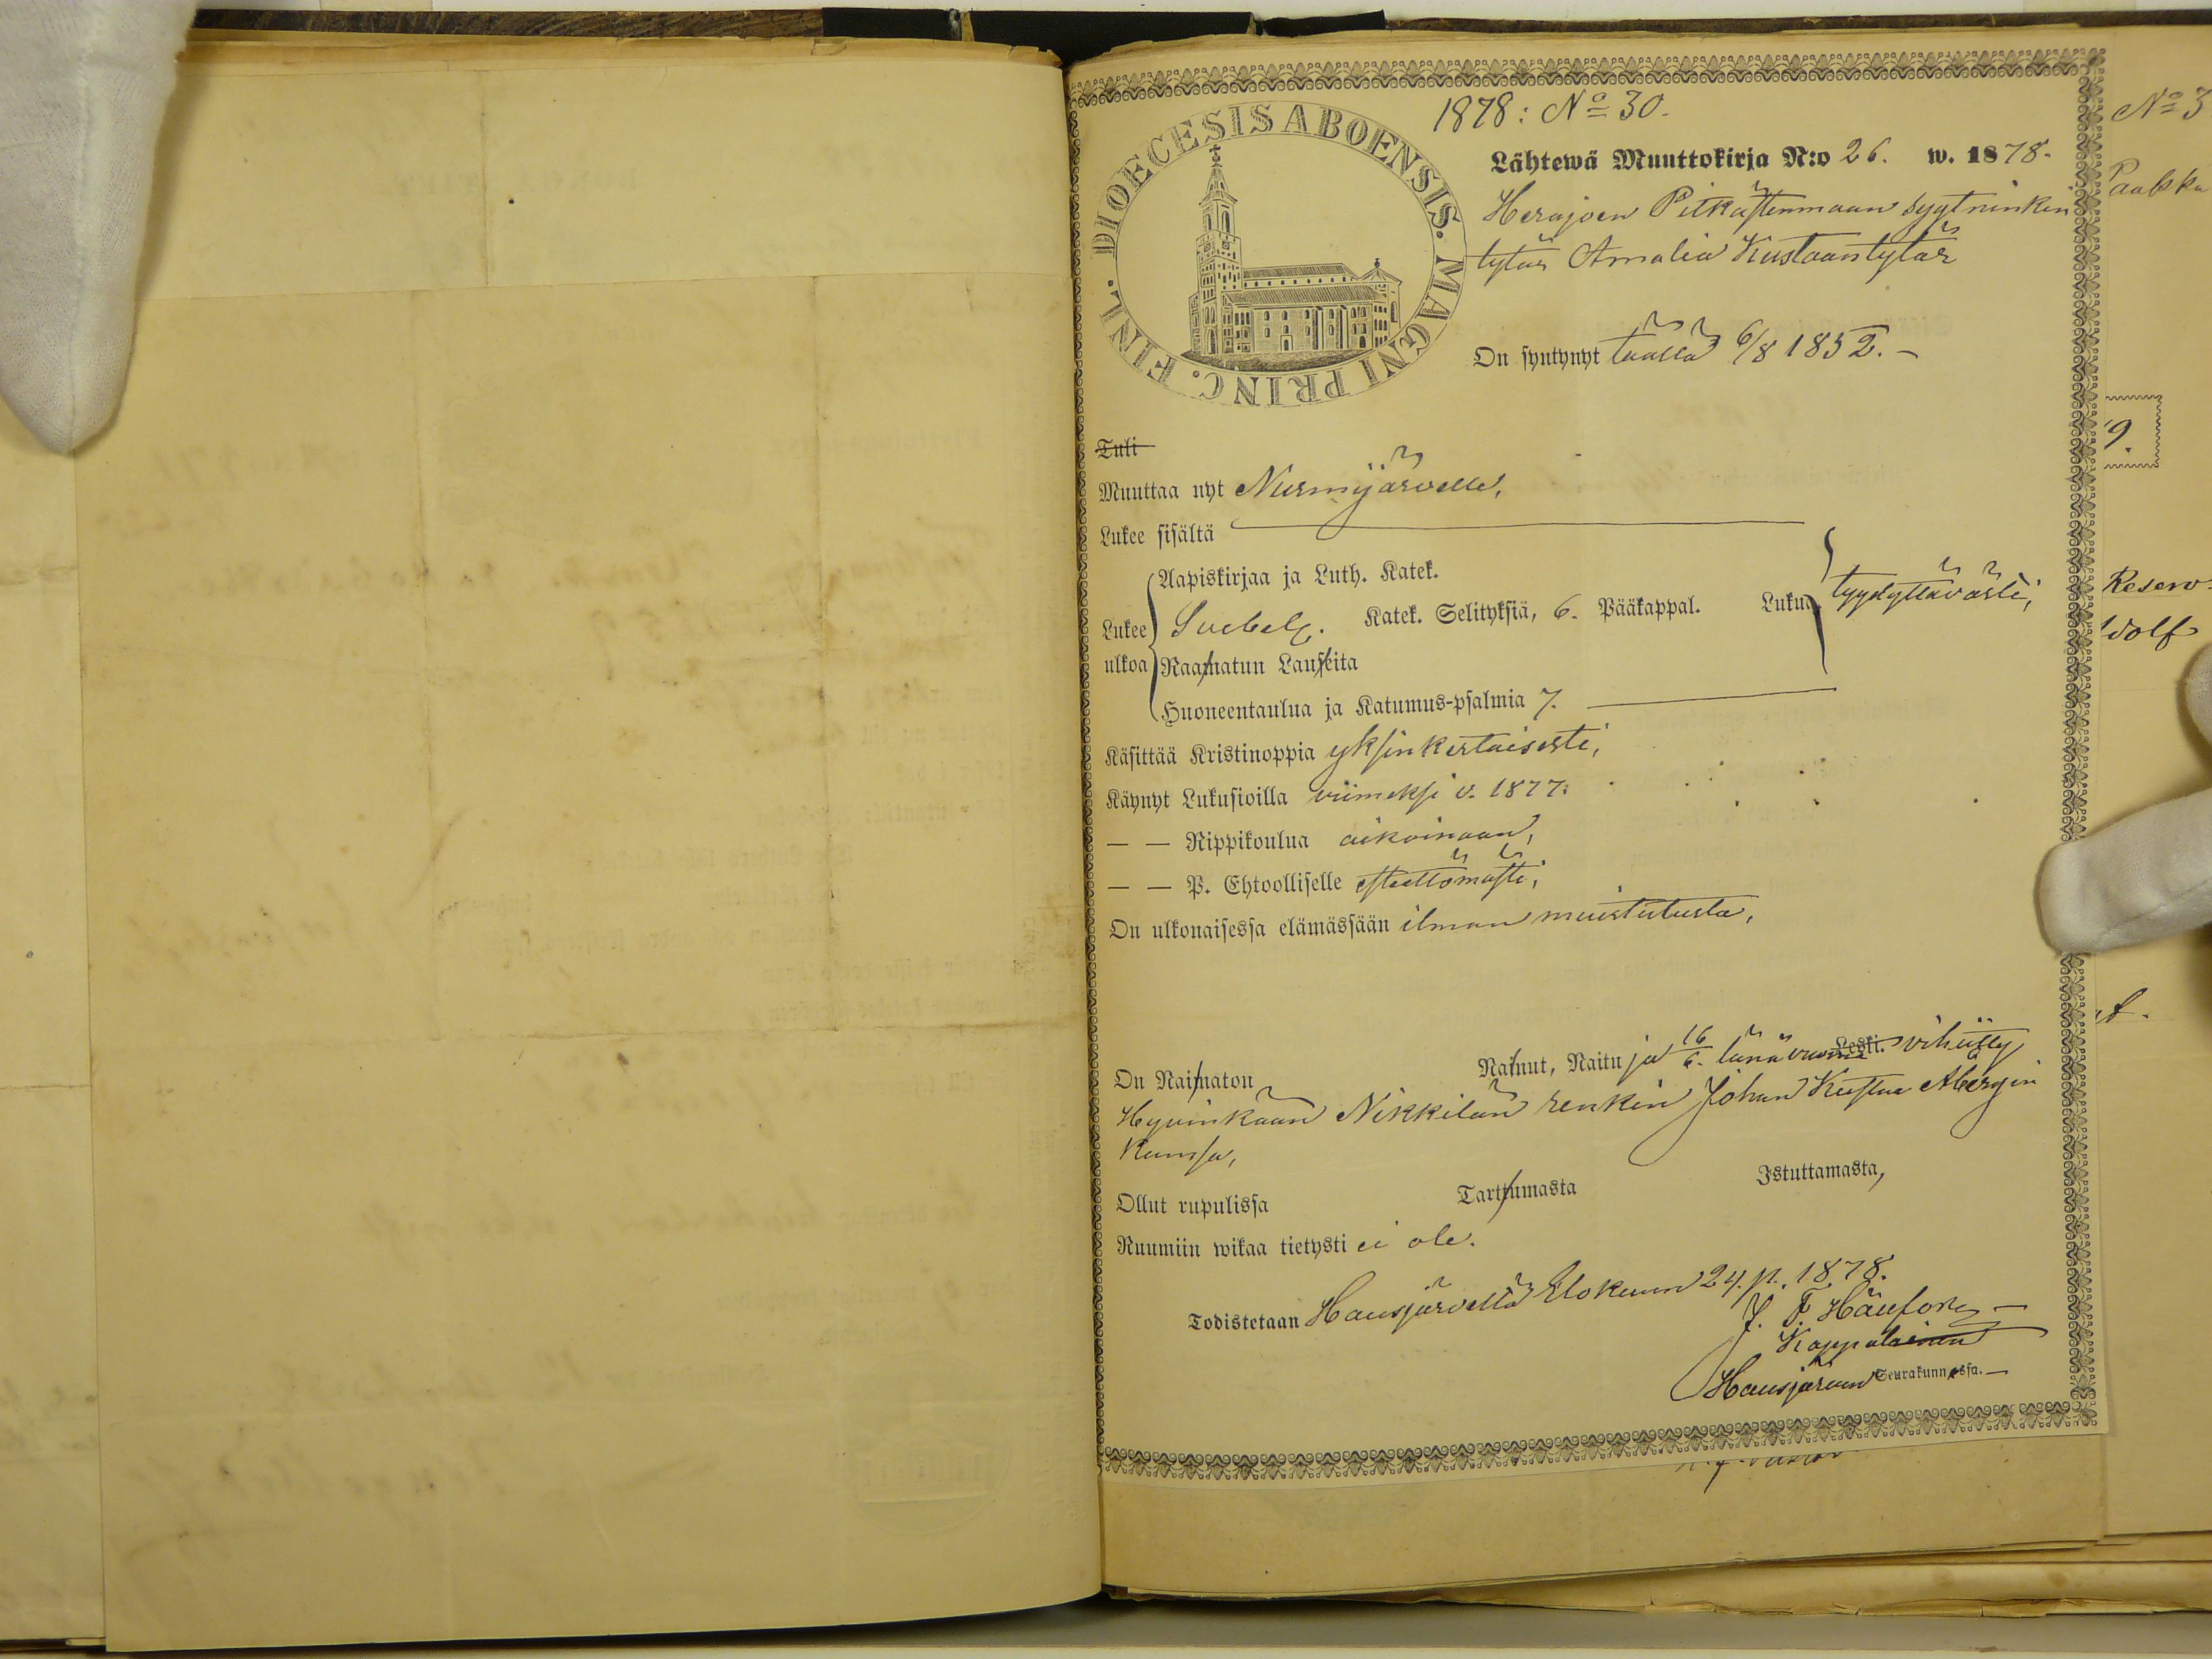 1878: No 30.
DIOECESIS ABOENSIS. MAGNI PRINC. FINL.
Lähtewä Muuttokirja N:o 26. w. 1878.
Herajoen Pitkästenmaan syytninkin
tytär Amalia Kustaantytär
On syntynyt täällä 6/8 1852. –
Tuli
Muuttaa nyt Nurmijärvelle,
Lukee sisältä
Aapiskirjaa ja Luth. Katek.
Lukee ulkoa
Svebel. Katek. Selityksiä, 6. Pääkappal. Lukua tyydyttävästi,
Raamatun Lauseita
Huoneentaulua ja Katumus-psalmia 7.
Käsittää Kristinoppia yksinkertaisesti,
Käynyt Lukusioilla viimeksi v. 1877.
— — Rippikoulua aikoinaan,
— — P. Ehtoolliselle esteettömästi,
On ulkonaisessa elämässään ilman muistutusta,
On Naimaton Nainut, Naitu ja 16/6. tänä vuonna Leski. vihitty
Hyvinkään Nikkilän renkin Johan Kustaa Åbergin
kanssa,
Ollut rupulissa Tarttumasta Istuttamasta,
Ruumiin wikaa tietysti ei ole.
Todistetaan Hausjärvellä Elokuun 24. p. 1878.
J. F.
Kappalainen
Hausjärven Seurakunnassa. –
No 3
Paakka
9.
Reserv
dolf